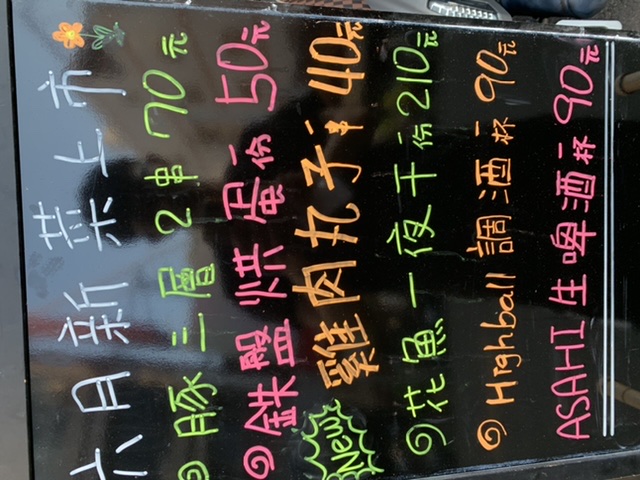 六月新菜上市
豚三層 2串70元
鉄盤烘蛋一份50元
New 雞肉丸子一串40元
花魚一夜干一份210元
Highball調酒一杯90元
ASAHI生啤酒一杯90元